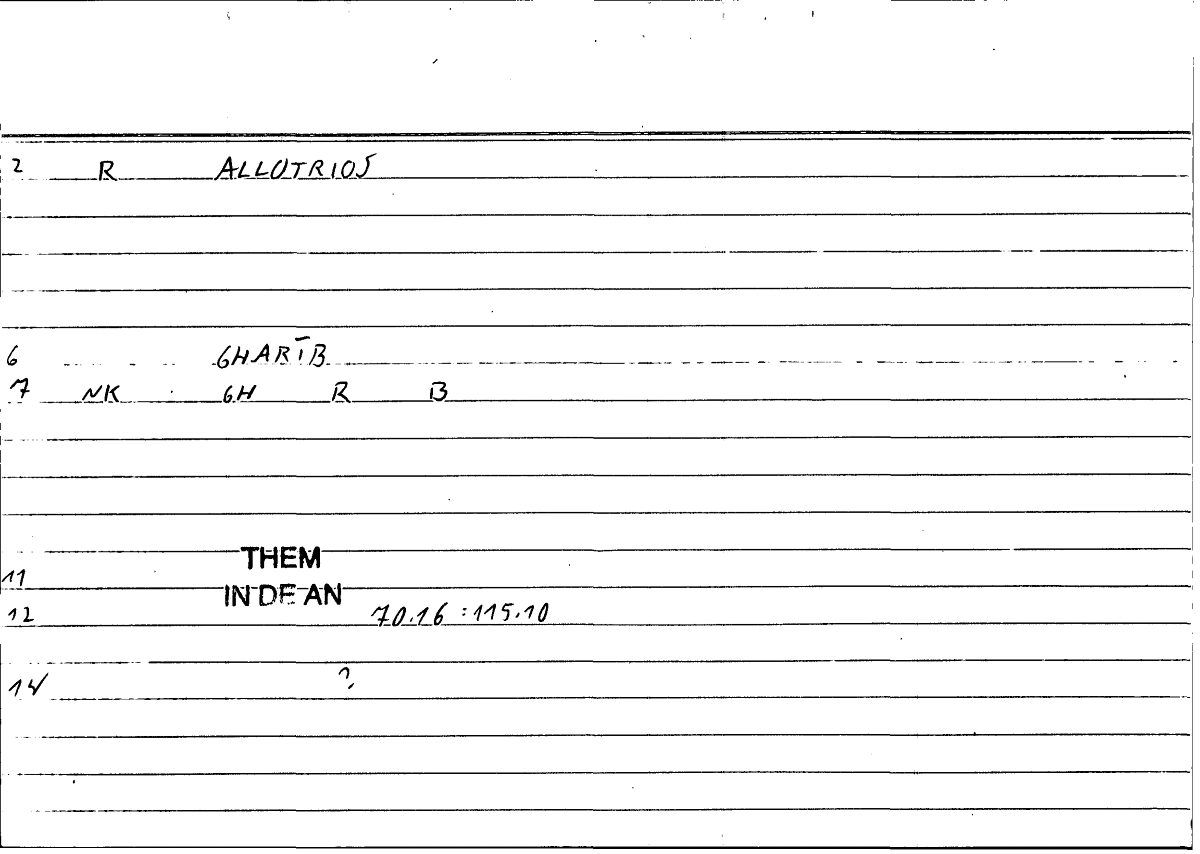 2 R ALLOTRIOS
6 GHARĪB
7 NK GH R B
THEM
11
IN DE AN
12 70.16 : 115.10
14 ?